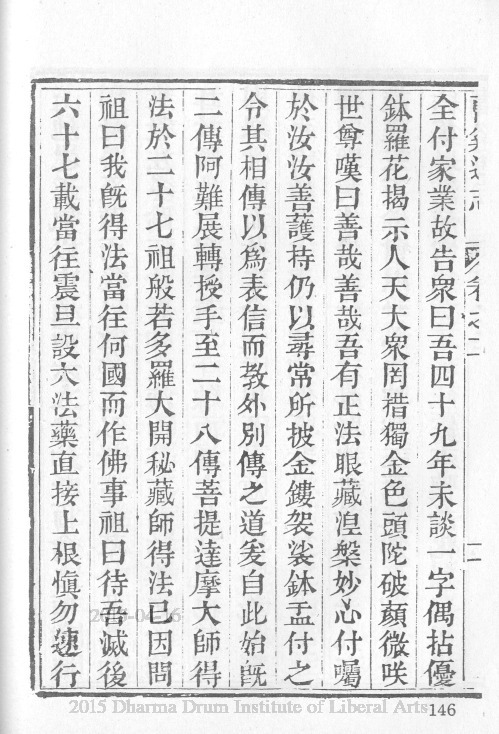 全付家業故告衆曰吾四十九年未談一字偶拈優
鉢羅花揭示人天大衆罔措獨金色頭陀破顏微咲
世尊嘆曰善哉善哉吾有正法眼藏湼槃妙心付囑
於汝汝善護持仍以尋常所披金鏤袈裟鉢盂付之
令其相傳以爲表信而教外別傳之道爰自此始旣
二傳阿難展轉授手至二十八傳菩提達摩大師得
法於二十七祖般若多羅大開秘藏師得法已因問
祖曰我旣得法當往何國而作佛事祖曰待吾滅後
六十七載當往震旦設大法藥直接上根愼勿速行
2015 Dharma Drum Institute of Liberal Arts
146